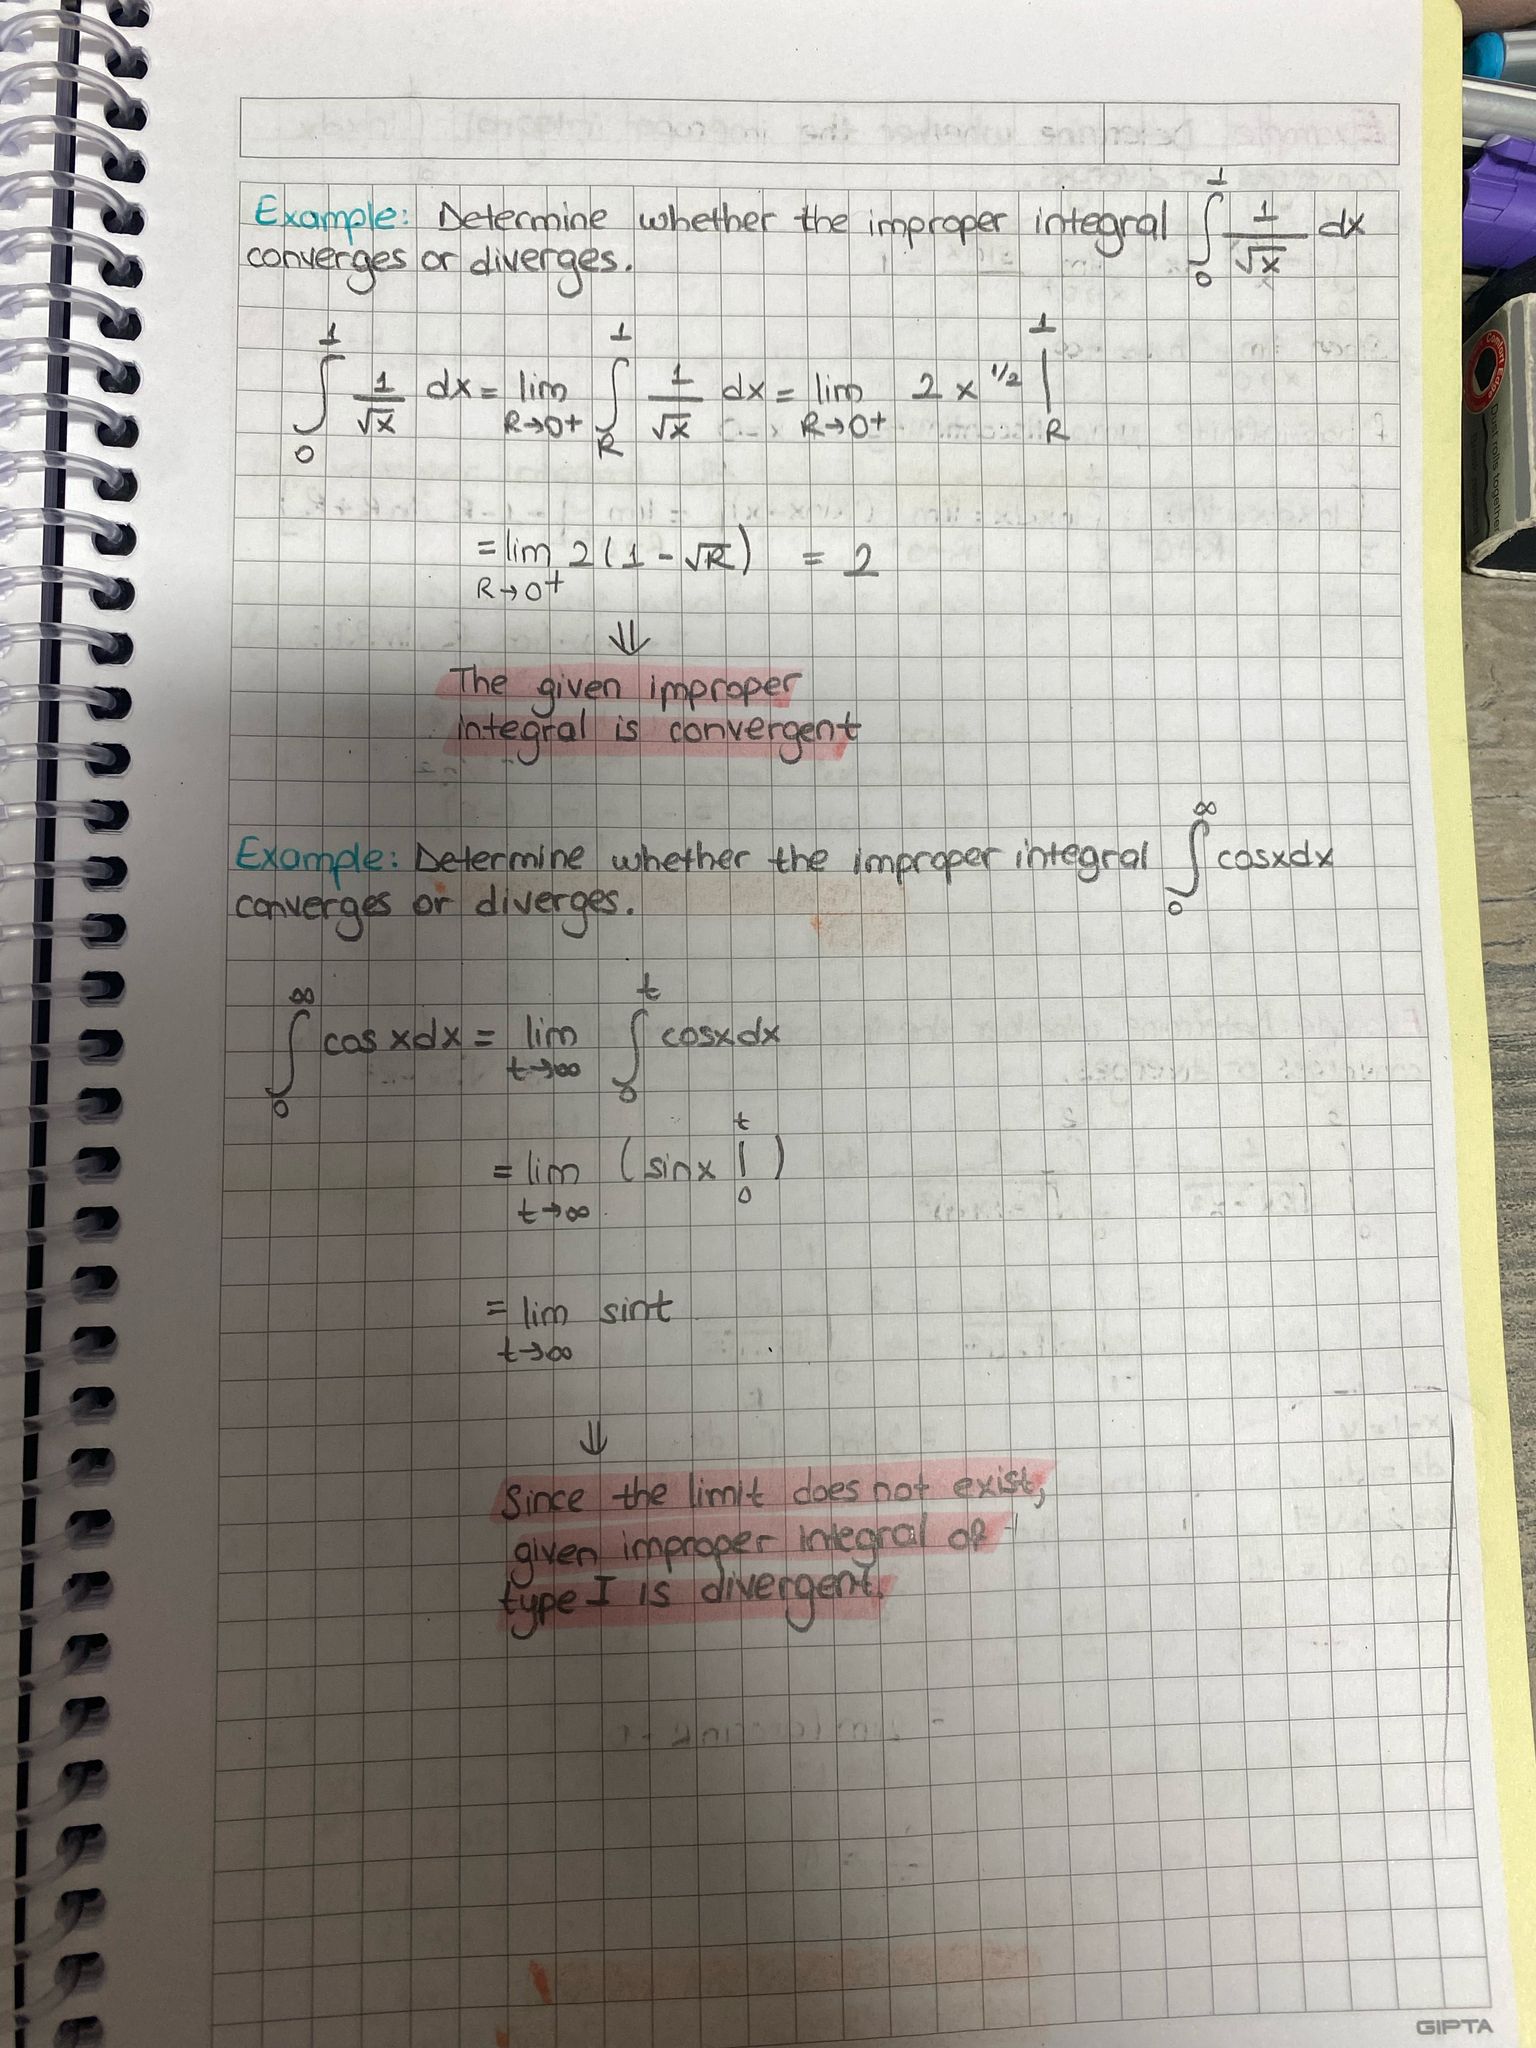 Example: Determine whether the improper integral ∫₀¹ 1/√x dx
converges or diverges.
∫₀¹ 1/√x dx = lim R→0+ ∫_R¹ 1/√x dx = lim R→0+ 2x^1/2 |_R¹
= lim R→0+ 2(1-√R) = 2
⇓
The given improper
integral is convergent
Example: Determine whether the improper integral ∫₀^∞ cosxdx
converges or diverges.
∫₀^∞ cos xdx = lim t→∞ ∫₀^t cosxdx
= lim t→∞ (sinx |₀^t )
= lim t→∞ sint
⇓
Since the limit does not exist,
given improper integral of
type I is divergent.
GIPTA
Comfort Edge